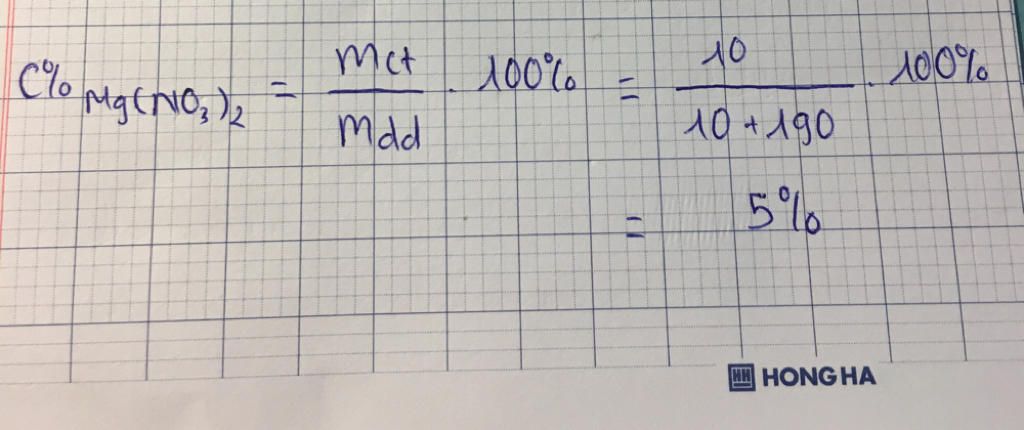 C% Mg(NO₃)₂ = mct / mdd . 100% = 10 / 10 + 190 . 100%
= 5%
HH HONG HA